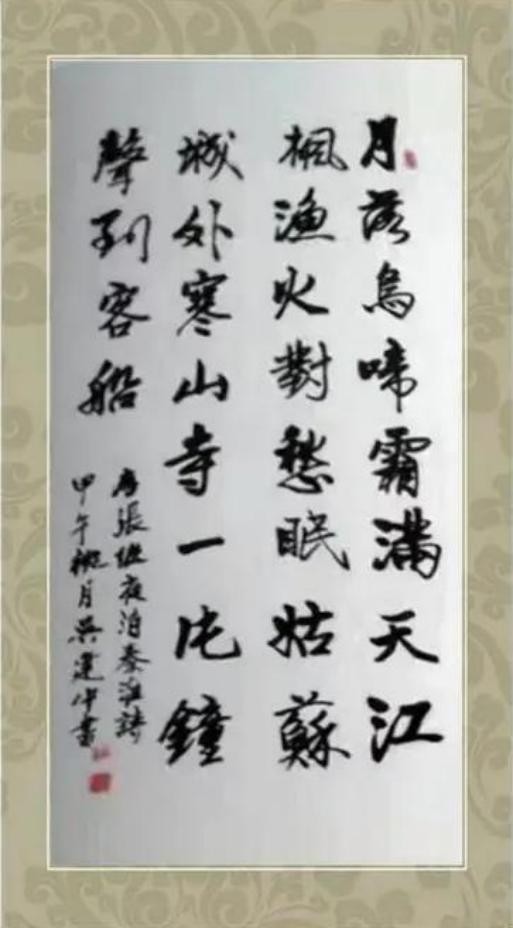 月落烏啼霜滿天江
楓漁火對愁眠姑蘇
城外寒山寺一鐘
聲到客船
張繼夜泊秦淮詩
甲午月吳中書